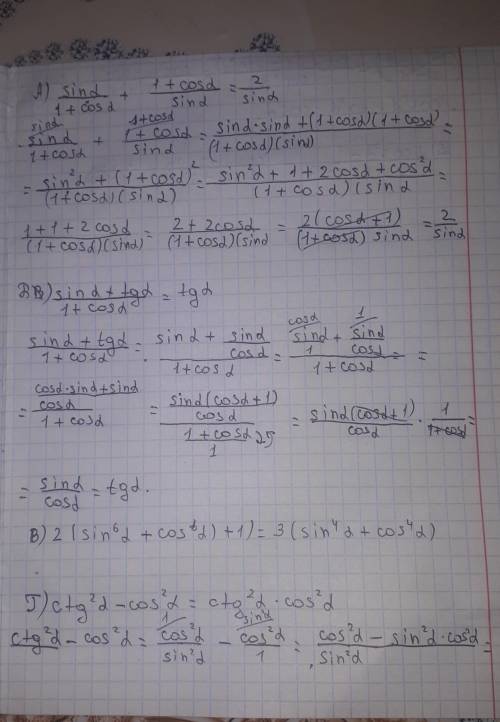 А) sinα/(1+cosα) + (1+cosα)/sinα = 2/sinα
sinα/ sinα/(1+cosα) + 1+cosα/ (1+cosα)/sinα = (sinα·sinα+(1+cosα)(1+cosα))/((1+cosα)(sinα)) =
= (sin²α+(1+cosα)²)/((1+cosα)(sinα)) = (sin²α+1+2cosα+cos²α)/((1+cosα)(sinα) =
(1+1+2cosα)/((1+cosα)(sinα)) = (2+2cosα)/((1+cosα)(sinα) = 2(cosα+1)/((1+cosα) sinα) = 2/sinα
Б) (sinα+tgα)/(1+cosα) = tgα
(sinα+tgα)/(1+cosα) = (sinα + sinα/cosα)/(1+cosα) = (cosα/ sinα/1 + 1/ sinα/cosα)/(1+cosα) = =
= ((cosα·sinα+sinα)/cosα)/(1+cosα) = (sinα(cosα+1)/cosα)/((1+cosα)/1) = sinα(cosα+1)/cosα · 1/(1+cosα) =
= sinα/cosα = tgα.
В) 2(sin⁶α+cos⁶α)+1)=3(sin⁴α+cos⁴α)
Г) ctg²α-cos²α = ctg²α·cos²α
ctg²α-cos²α = 1/ cos²α/sin²α - sin²α/ cos²α/1 = (cos²α-sin²α·cos²α)/sin²α =